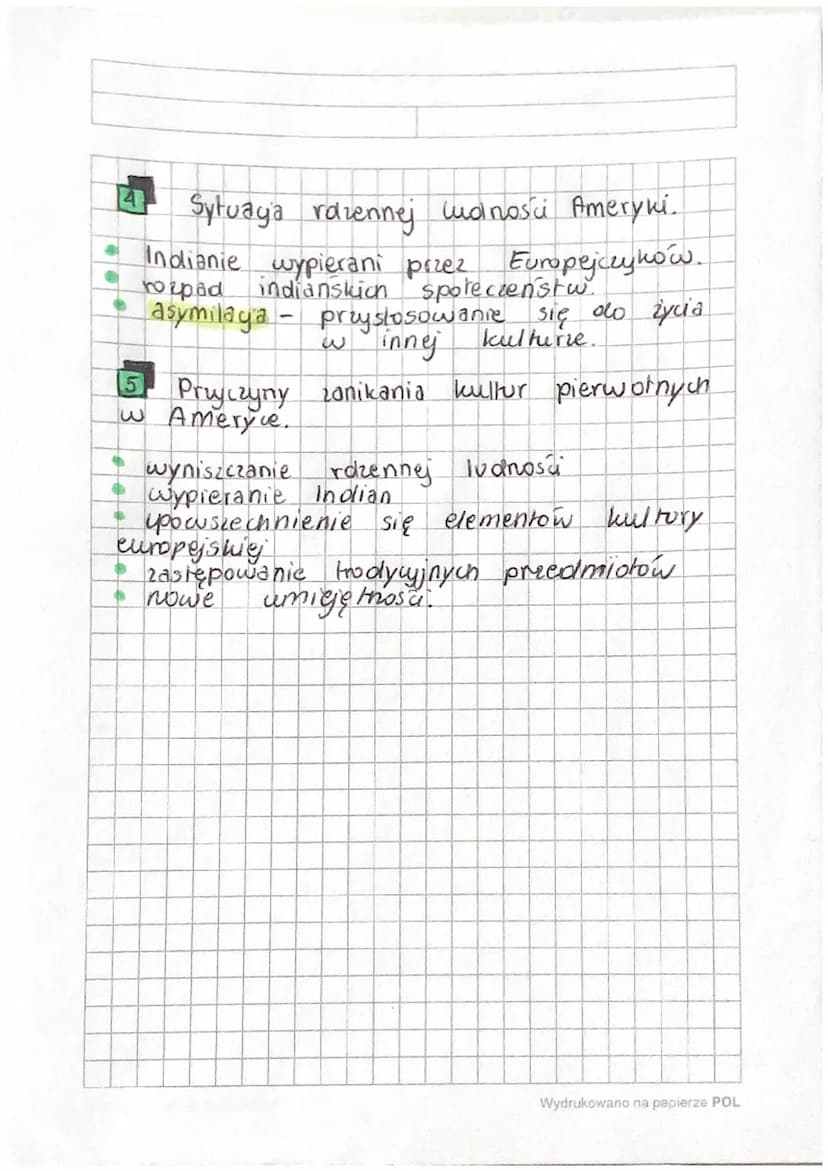 4 Sytuacja rdzennej ludności Ameryki.
Indianie wypierani przez Europejczyków.
rozpad indiańskich społeczeństw.
asymilacja - przystosowanie się do życia
w innej kulturze.
5 Przyczyny zanikania kultur pierwotnych
w Ameryce.
wyniszczanie rdzennej ludności
wypieranie Indian
upowszechnienie się elementów kultury
europejskiej
zastępowanie tradycyjnych przedmiotów
nowe umiejętności.
Wydrukowano na papierze POL